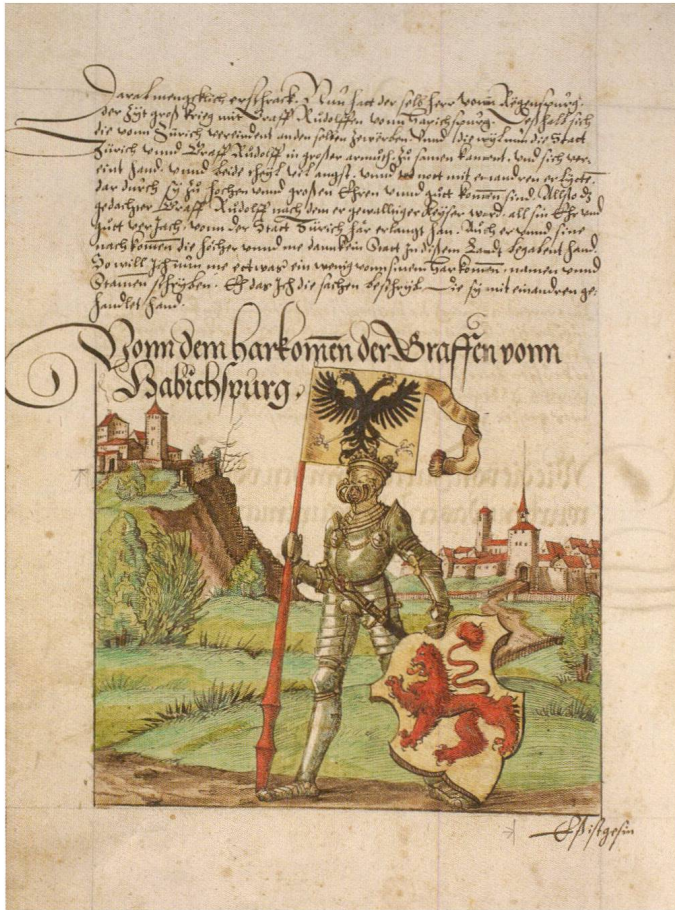 Darab mengklich erschrack. Nun hatt der selb Herr vonn Regenspurg.
der Zyt groß krieg mit Graff Rudolffen vonn Harichspurg. Deßhalb sich
die vonn Zürich vereindent an den selben zewerben. Unnd die wyl nun die Statt
Zürich unnd Graff Rudolff in großer armuth. Zu samen kament. und sich ver¬
eint hand. unnd beide theyl vil angst. unnd nott mit einandren erlitte.
dar durch sy zu hochen unnd großen Ehren unnd gutt kommen sind. Allso dz
gedachter Graff Rudolff nach dem er gewalltiger Keyser ward. all sin Ehr und
gutt von der Statt Zürich här erlangt han. Auch er unnd sine
nachkommen die höcher unnd me dann kein Statt zu dißem Landt begabent hand.
So will Ich nun me ettwas ein wenig vonn sinem Harkomen. namen unnd
Stamen schryben. Eh das Ich die sachen beschryb. Die sy mit einandren ge¬
handlet hand.
Vonn dem harkomen der Graffen vonn
Habichspurg.
Eß ist gesin